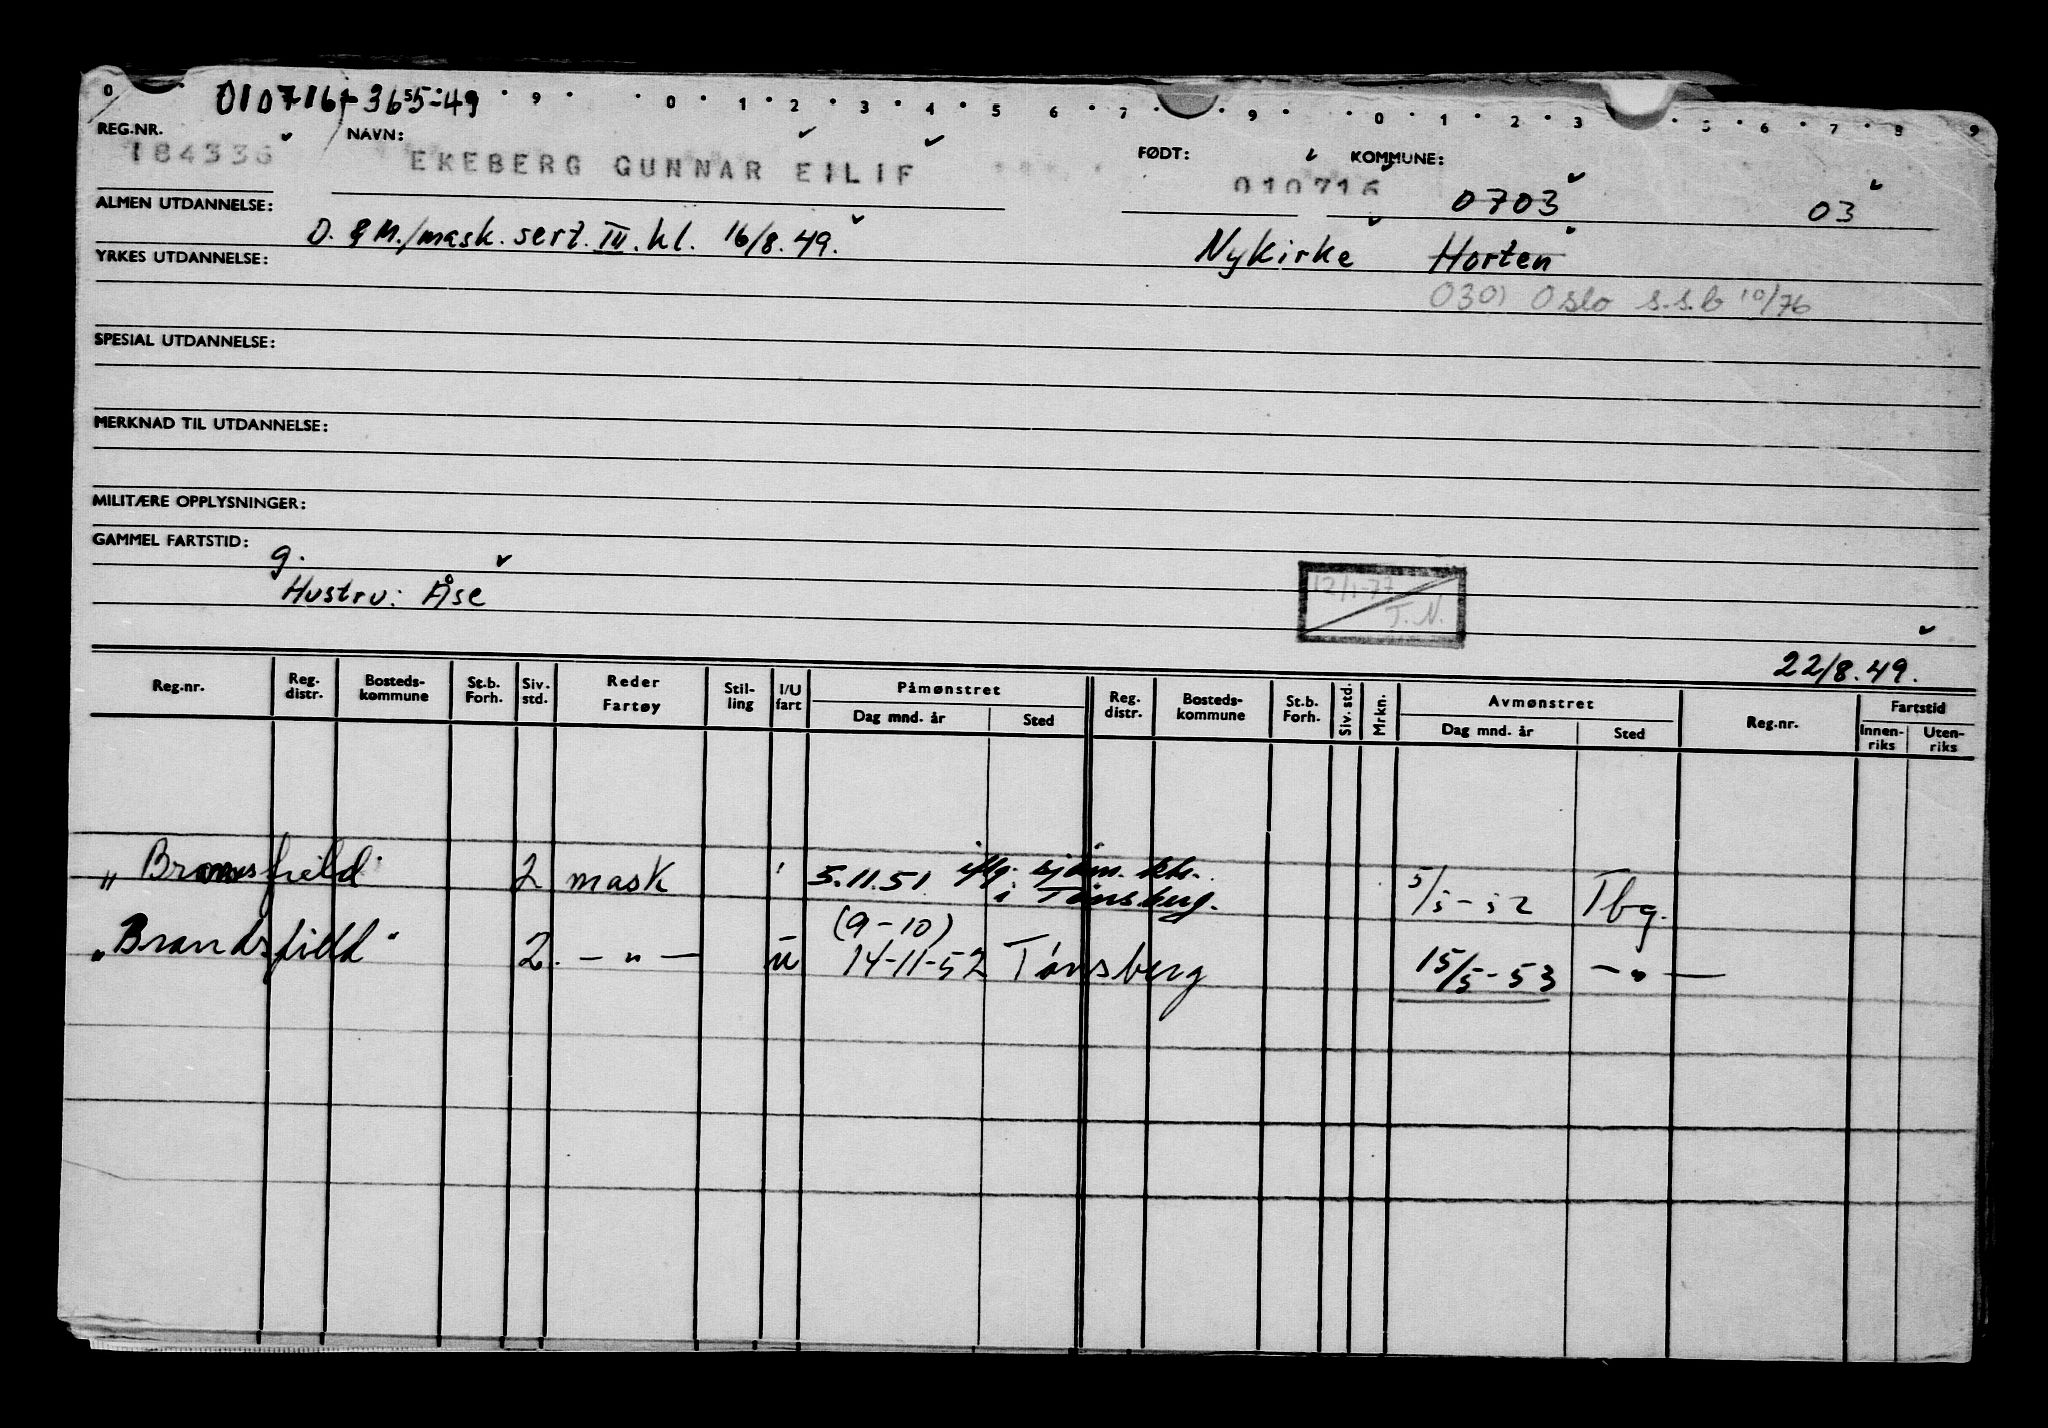 010716-36549
0 9 0 1 2 3 4 5 6 7 9 0 1 2 3 5 6 7 8 9
REG.NR. NAVN: FØDT: KOMMUNE:
184336 EKEBERG GUNNAR EILIF 010716 0703 03
ALMEN UTDANNELSE: D. & M./mask. sert. III. kl. 16/8.49. Nykirke Horten
YRKES UTDANNELSE: 0301 Oslo s.s.b 10/76
SPESIAL UTDANNELSE:
MERKNAD TIL UTDANNELSE:
MILITÆRE OPPLYSNINGER:
GAMMEL FARTSTID: g.
Hustru: Åse 12/1-77 T.N.
22/8.49.
Reg.nr. Reg. distr. Bosteds- kommune St.b. Forh. Siv. std. Reder Fartøy Stil- ling I/U fart Påmønstret Dag mnd. år Sted Reg. distr. Bosteds- kommune St.b. Forh. Siv. std. Mrkn. Avmønstret Dag mnd. år Sted Reg.nr. Fartstid Innen- riks Uten- riks
" Bransfield" 2 mask 5.11.51 iflg. sjøm. ktr. i Tønsberg. 5/5-52 Tbg.
(9-10)
"Brandsfield" 2. — " — u 14-11-52 Tønsberg 15/5-53 — " —